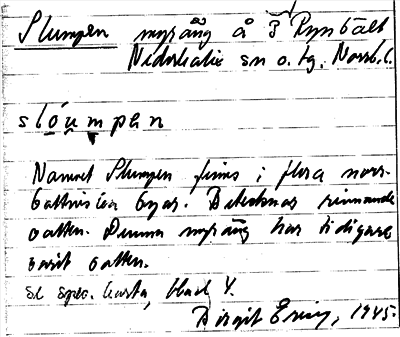 Slumpen myräng å F Rynbält
Nederkalix sn o. tg. Norrb.l.
slóumpən
Namnet Slumpen finns i flera norr-
bottniska byar. Betecknar rinnande
vatten. Denna myräng har tidigare
varit vatten.
Se spec. karta, blad Y.
Birgit Ering, 1945.